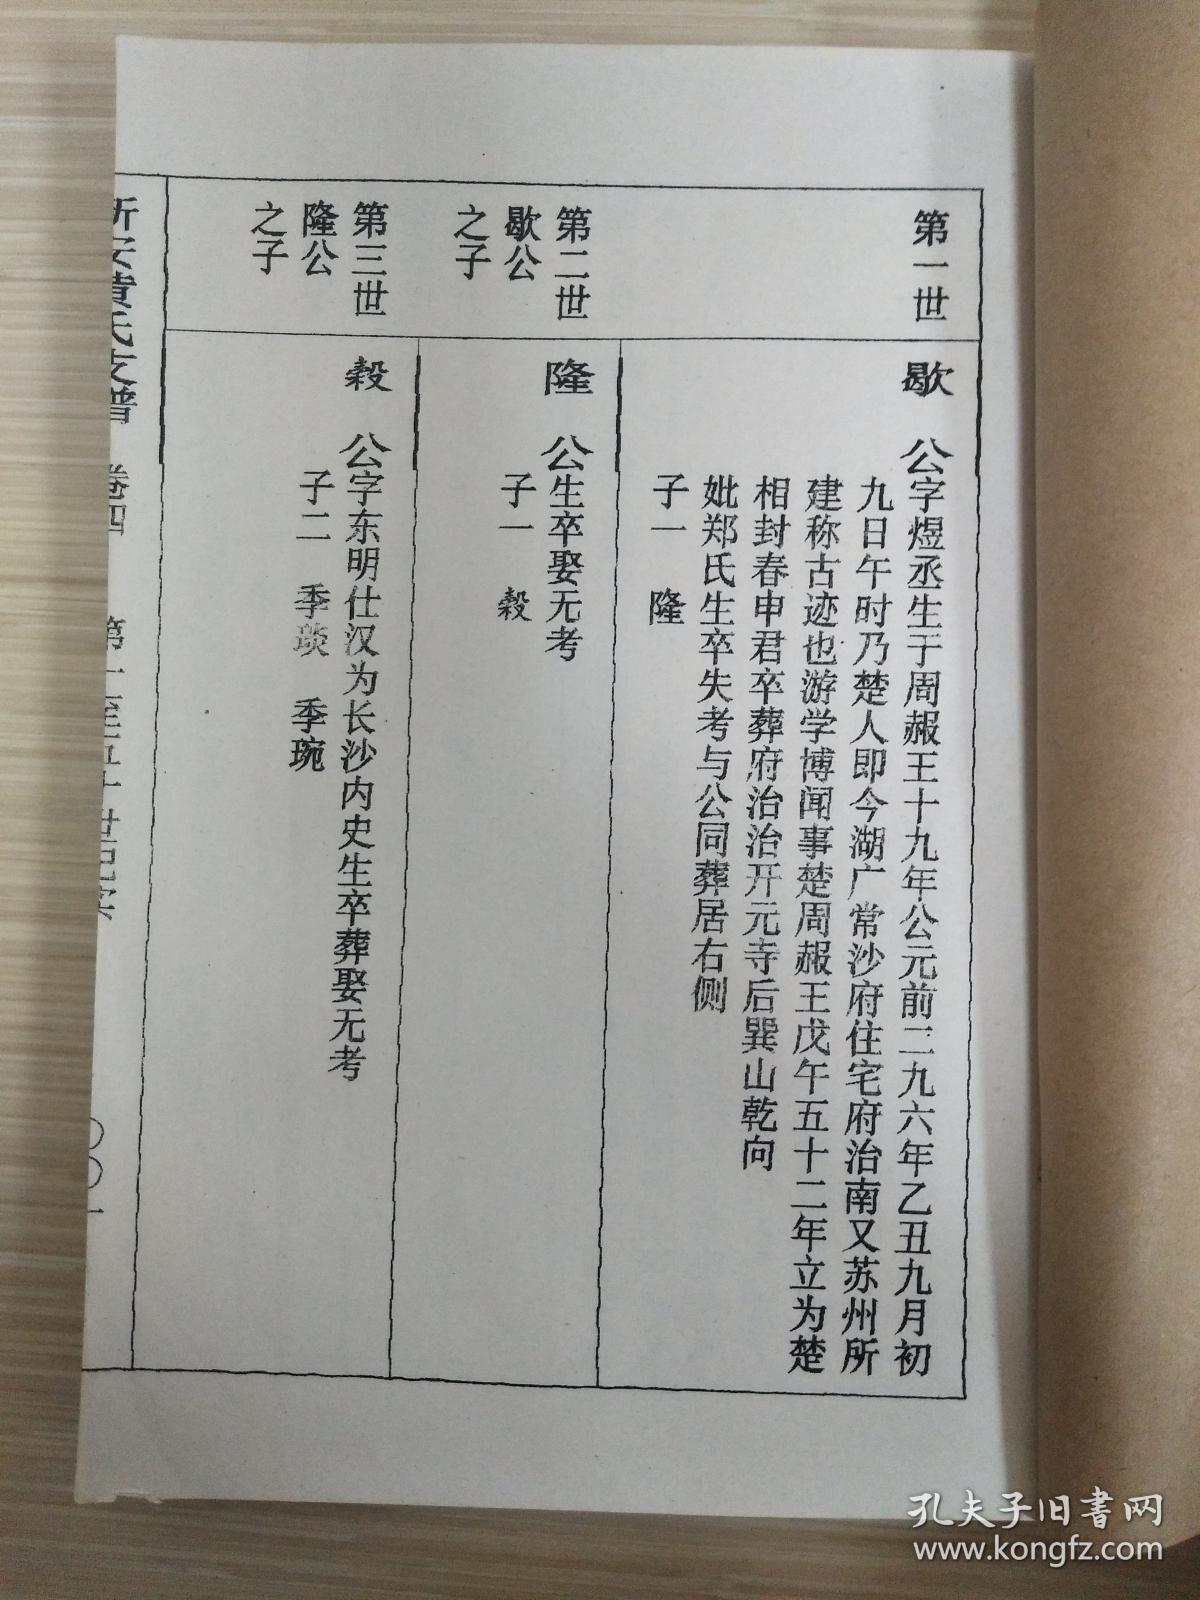 第一世
歇
公字煜丞生于周赧王十九年公元前二九六年乙丑九月初
九日午时乃楚人即今湖广常沙府住宅府治南又苏州所
建称古迹也游学博闻事楚周赧王戊午五十二年立为楚
相封春申君卒葬府治治开元寺后巽山乾向
妣郑氏生卒失考与公同葬居右侧
子一 隆
第二世
歇公
之子
隆
公生卒娶无考
子一 毅
第三世
隆公
之子
毅
公字东明仕汉为长沙内史生卒葬娶无考
子二 季琰 季琬
新安黄氏支谱 卷四 第一至五十世纪实 〇〇一
孔夫子旧書网
www.kongfz.com